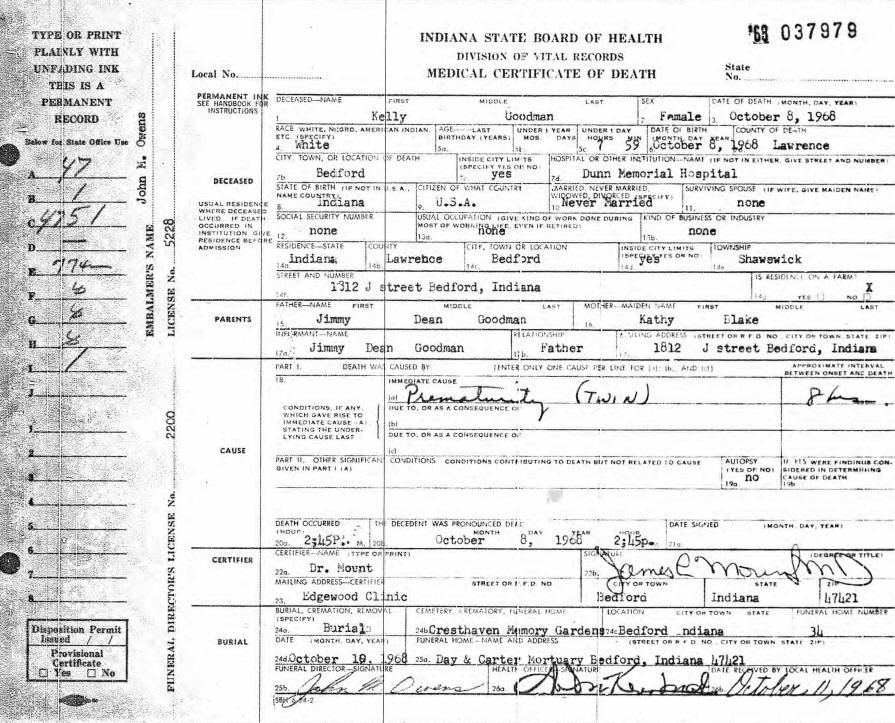 '68 037979
TYPE OR PRINT
PLAINLY WITH
UNFADING INK
THIS IS A
PERMANENT
RECORD
Below for State Office Use
A 47
B 1
C 4751
D —
E 774—
F
G
H
I 1
J
1
2
3
4
5
6
7
8
Disposition Permit
Issued / /
Provisional
Certificate
☐ Yes ☐ No
EMBALMER'S NAME John M. Owens
LICENSE No. 5228
FUNERAL DIRECTOR'S LICENSE No. 2200
INDIANA STATE BOARD OF HEALTH
DIVISION OF VITAL RECORDS
Local No. MEDICAL CERTIFICATE OF DEATH State No.
PERMANENT INK
SEE HANDBOOK FOR
INSTRUCTIONS
DECEASED—NAME FIRST MIDDLE LAST SEX DATE OF DEATH (MONTH, DAY, YEAR)
1. Kelly Goodman 2. Female 3. October 8, 1968
RACE WHITE, NEGRO, AMERICAN INDIAN, ETC. (SPECIFY) AGE—LAST BIRTHDAY (YEARS) UNDER 1 YEAR MOS. DAYS UNDER 1 DAY HOURS MIN DATE OF BIRTH (MONTH, DAY, YEAR) COUNTY OF DEATH
4. White 5a. 5b. 5c. 7 59 6. October 8, 1968 Lawrence
CITY, TOWN, OR LOCATION OF DEATH INSIDE CITY LIMITS (SPECIFY YES OR NO) HOSPITAL OR OTHER INSTITUTION—NAME (IF NOT IN EITHER, GIVE STREET AND NUMBER)
7b. Bedford 7c. yes 7d. Dunn Memorial Hospital
DECEASED
USUAL RESIDENCE
WHERE DECEASED
LIVED. IF DEATH
OCCURRED IN
INSTITUTION, GIVE
RESIDENCE BEFORE
ADMISSION
STATE OF BIRTH (IF NOT IN U.S.A., NAME COUNTRY) CITIZEN OF WHAT COUNTRY MARRIED, NEVER MARRIED, WIDOWED, DIVORCED (SPECIFY) SURVIVING SPOUSE (IF WIFE, GIVE MAIDEN NAME)
8. Indiana 9. U.S.A. 10. Never Married 11. none
SOCIAL SECURITY NUMBER USUAL OCCUPATION (GIVE KIND OF WORK DONE DURING MOST OF WORKING LIFE, EVEN IF RETIRED) KIND OF BUSINESS OR INDUSTRY
12. none 13a. none 13b. none
RESIDENCE—STATE COUNTY CITY, TOWN OR LOCATION INSIDE CITY LIMITS (SPECIFY YES OR NO) TOWNSHIP
14a. Indiana 14b. Lawrence 14c. Bedford 14d. yes 14e. Shawswick
STREET AND NUMBER IS RESIDENCE ON A FARM?
14f. 1812 J street Bedford, Indiana 14g. YES ☐ NO X
PARENTS
FATHER—NAME FIRST MIDDLE LAST MOTHER—MAIDEN NAME FIRST MIDDLE LAST
15. Jimmy Dean Goodman 16. Kathy Blake
INFORMANT—NAME RELATIONSHIP MAILING ADDRESS (STREET OR R.F.D. NO., CITY OR TOWN, STATE, ZIP)
17a. Jimmy Dean Goodman 17b. Father 17c. 1812 J street Bedford, Indiana
PART I. DEATH WAS CAUSED BY (ENTER ONLY ONE CAUSE PER LINE FOR (a), (b), AND (c)) APPROXIMATE INTERVAL BETWEEN ONSET AND DEATH
18. IMMEDIATE CAUSE
(a) Prematurity (TWIN) 8 hrs.
CONDITIONS, IF ANY,
WHICH GAVE RISE TO
IMMEDIATE CAUSE (A)
STATING THE UNDER-
LYING CAUSE LAST
DUE TO, OR AS A CONSEQUENCE OF
(b)
DUE TO, OR AS A CONSEQUENCE OF
(c)
CAUSE
PART II. OTHER SIGNIFICANT CONDITIONS CONDITIONS CONTRIBUTING TO DEATH BUT NOT RELATED TO CAUSE GIVEN IN PART I (A) AUTOPSY (YES OR NO) IF YES WERE FINDINGS CONSIDERED IN DETERMINING CAUSE OF DEATH
19a. no 19b.
DEATH OCCURRED (HOUR) THE DECEDENT WAS PRONOUNCED DEAD MONTH DAY YEAR HOUR DATE SIGNED (MONTH, DAY, YEAR)
20a. 2;45P. M. 20b. October 8, 1968 2;45p. 21a.
CERTIFIER
CERTIFIER—NAME (TYPE OR PRINT) SIGNATURE (DEGREE OR TITLE)
22a. Dr. Mount 22b. James C Mount MD
MAILING ADDRESS—CERTIFIER STREET OR R.F.D. NO CITY OR TOWN STATE ZIP
23. Edgewood Clinic Bedford Indiana 47421
BURIAL
BURIAL, CREMATION, REMOVAL (SPECIFY) CEMETERY, CREMATORY, FUNERAL HOME LOCATION CITY OR TOWN STATE FUNERAL HOME NUMBER
24a. Burial 24b. Cresthaven Memory Gardens 24c. Bedford Indiana 34
DATE (MONTH, DAY, YEAR) FUNERAL HOME—NAME AND ADDRESS (STREET OR R.F.D. NO. CITY OR TOWN STATE ZIP)
24d. October 10, 1968 25a. Day & Carter Mortuary Bedford, Indiana 47421
FUNERAL DIRECTOR—SIGNATURE HEALTH OFFICER—SIGNATURE DATE RECEIVED BY LOCAL HEALTH OFFICER
25b. John M Owens 26a. 26b. October, 11, 1968
SBH 6-24-2